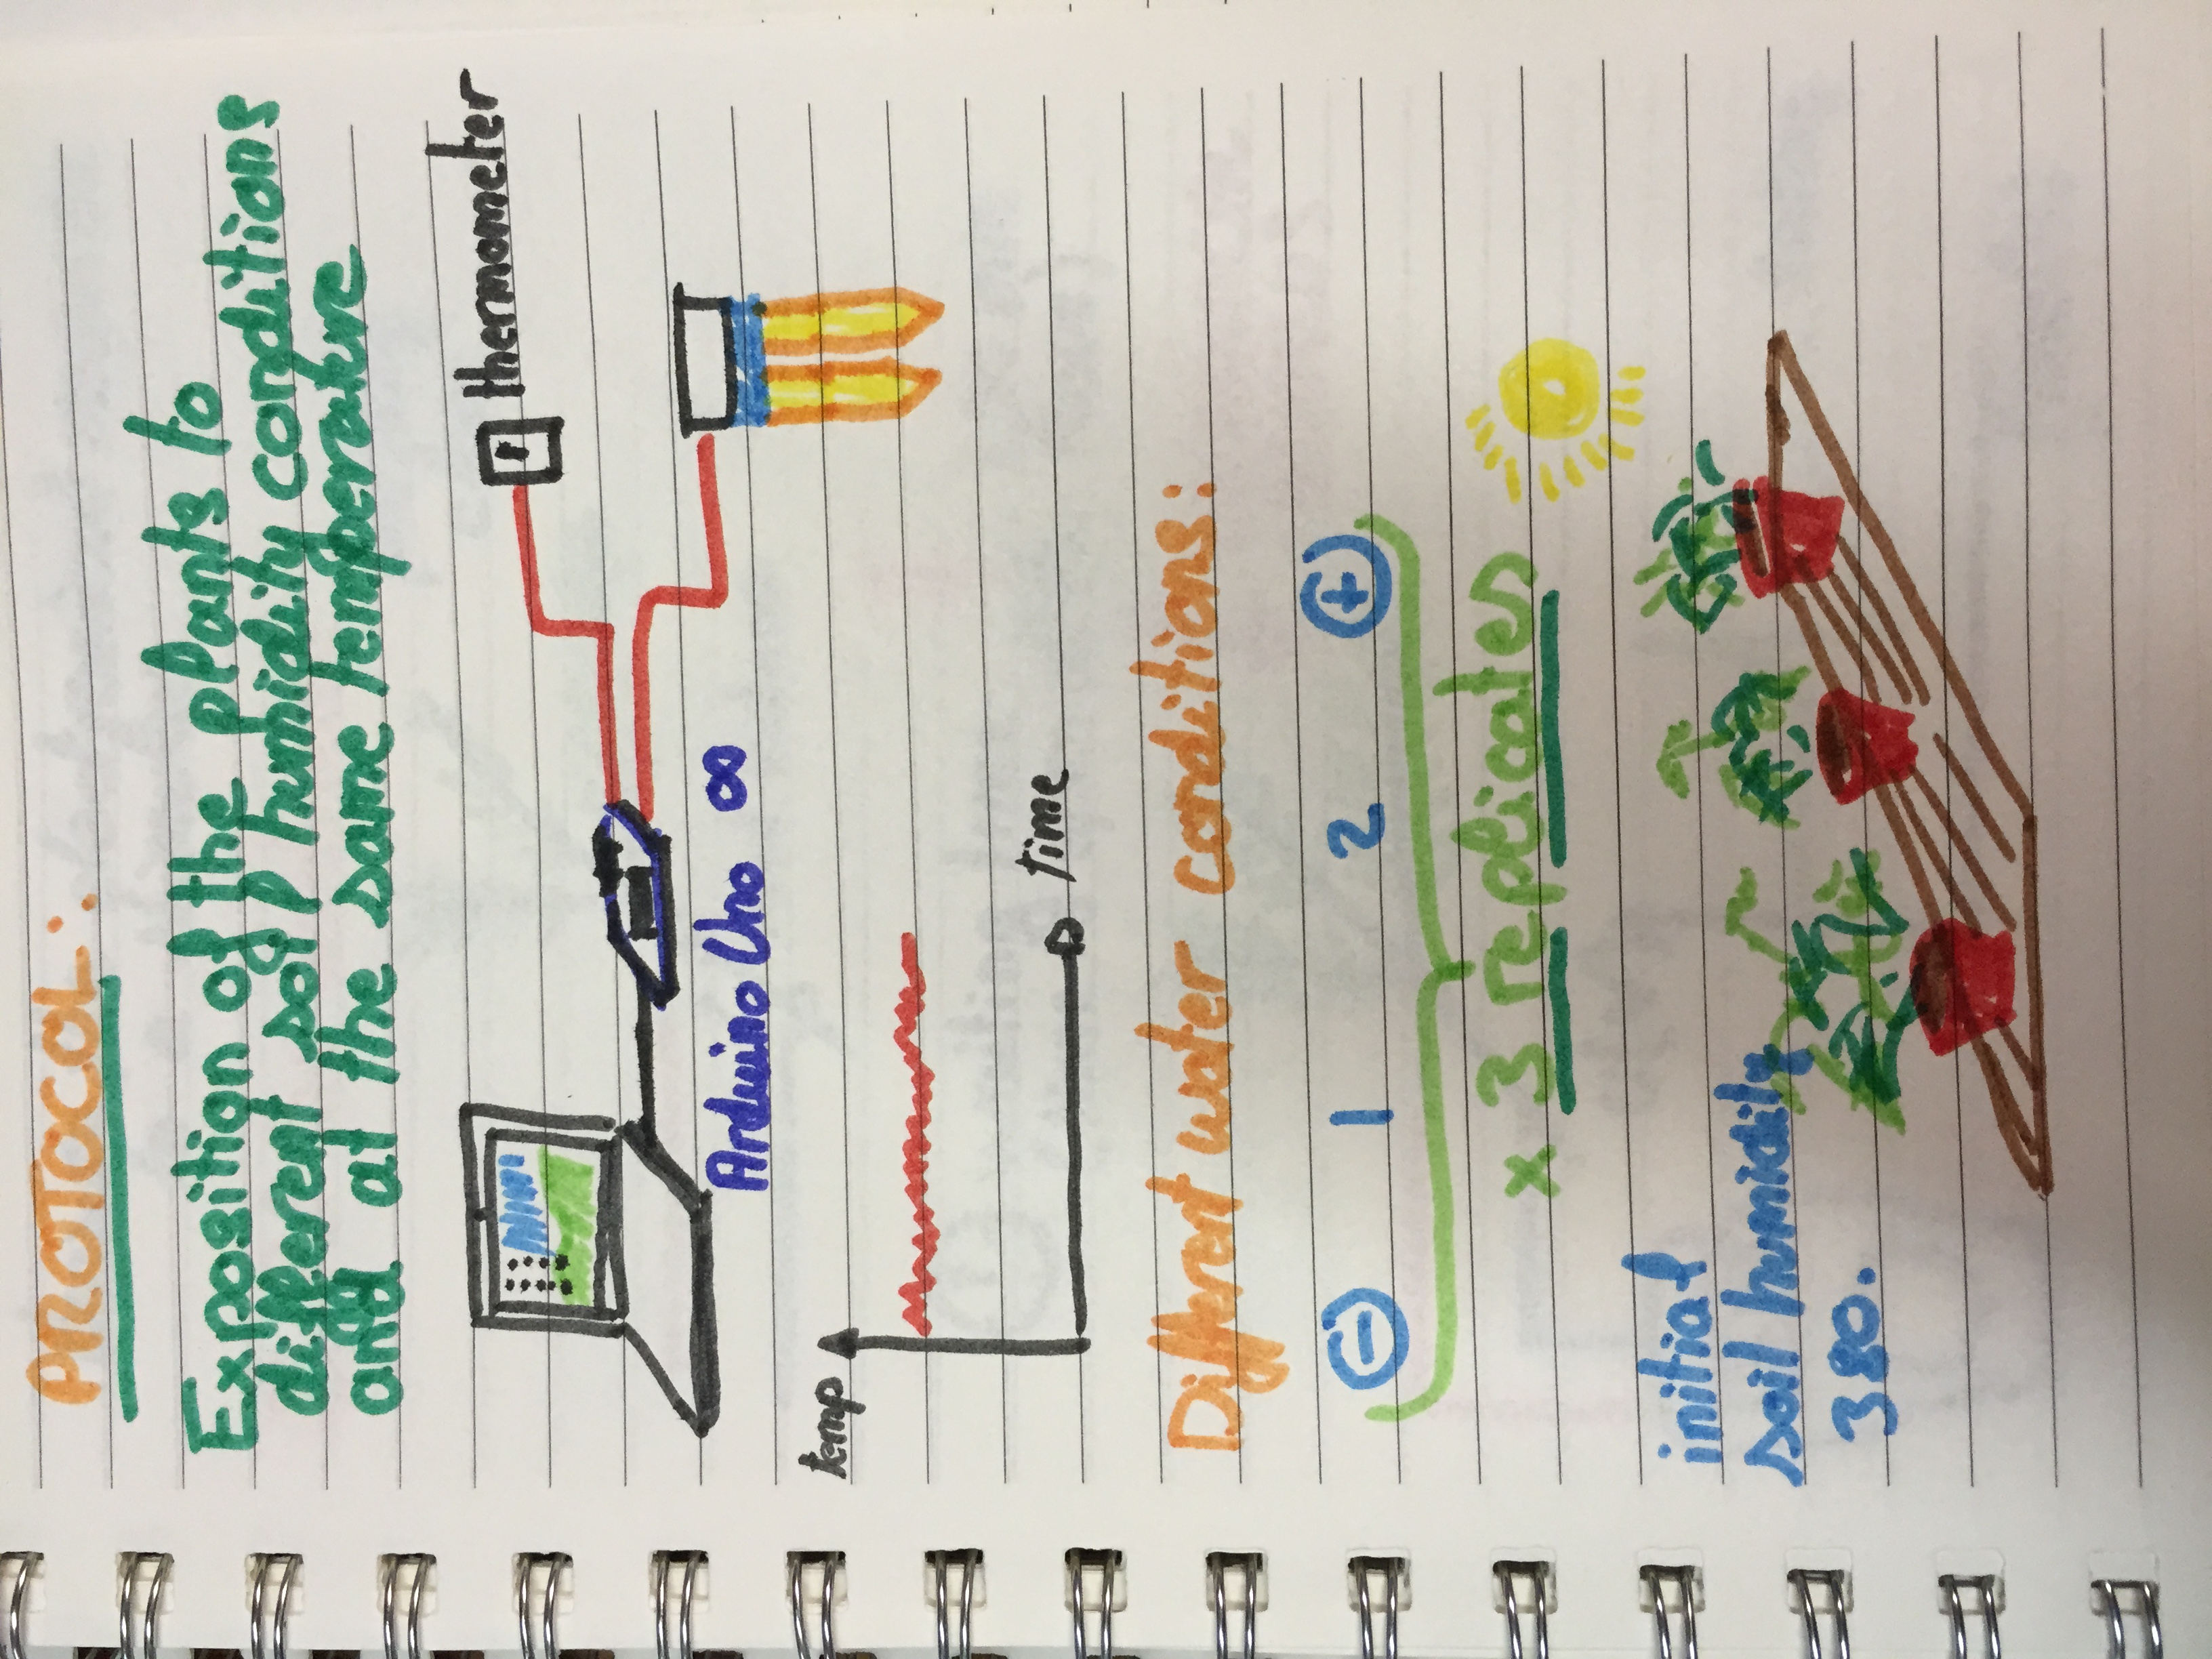 PROTOCOL:
Exposition of the plants to
different soil humidity conditions
and at the same temperature
thermometer
Arduino Uno ∞
temp
time
Different water conditions:
⊖ 1 2 ⊕
x 3 replicates
initial
soil humidity
380.